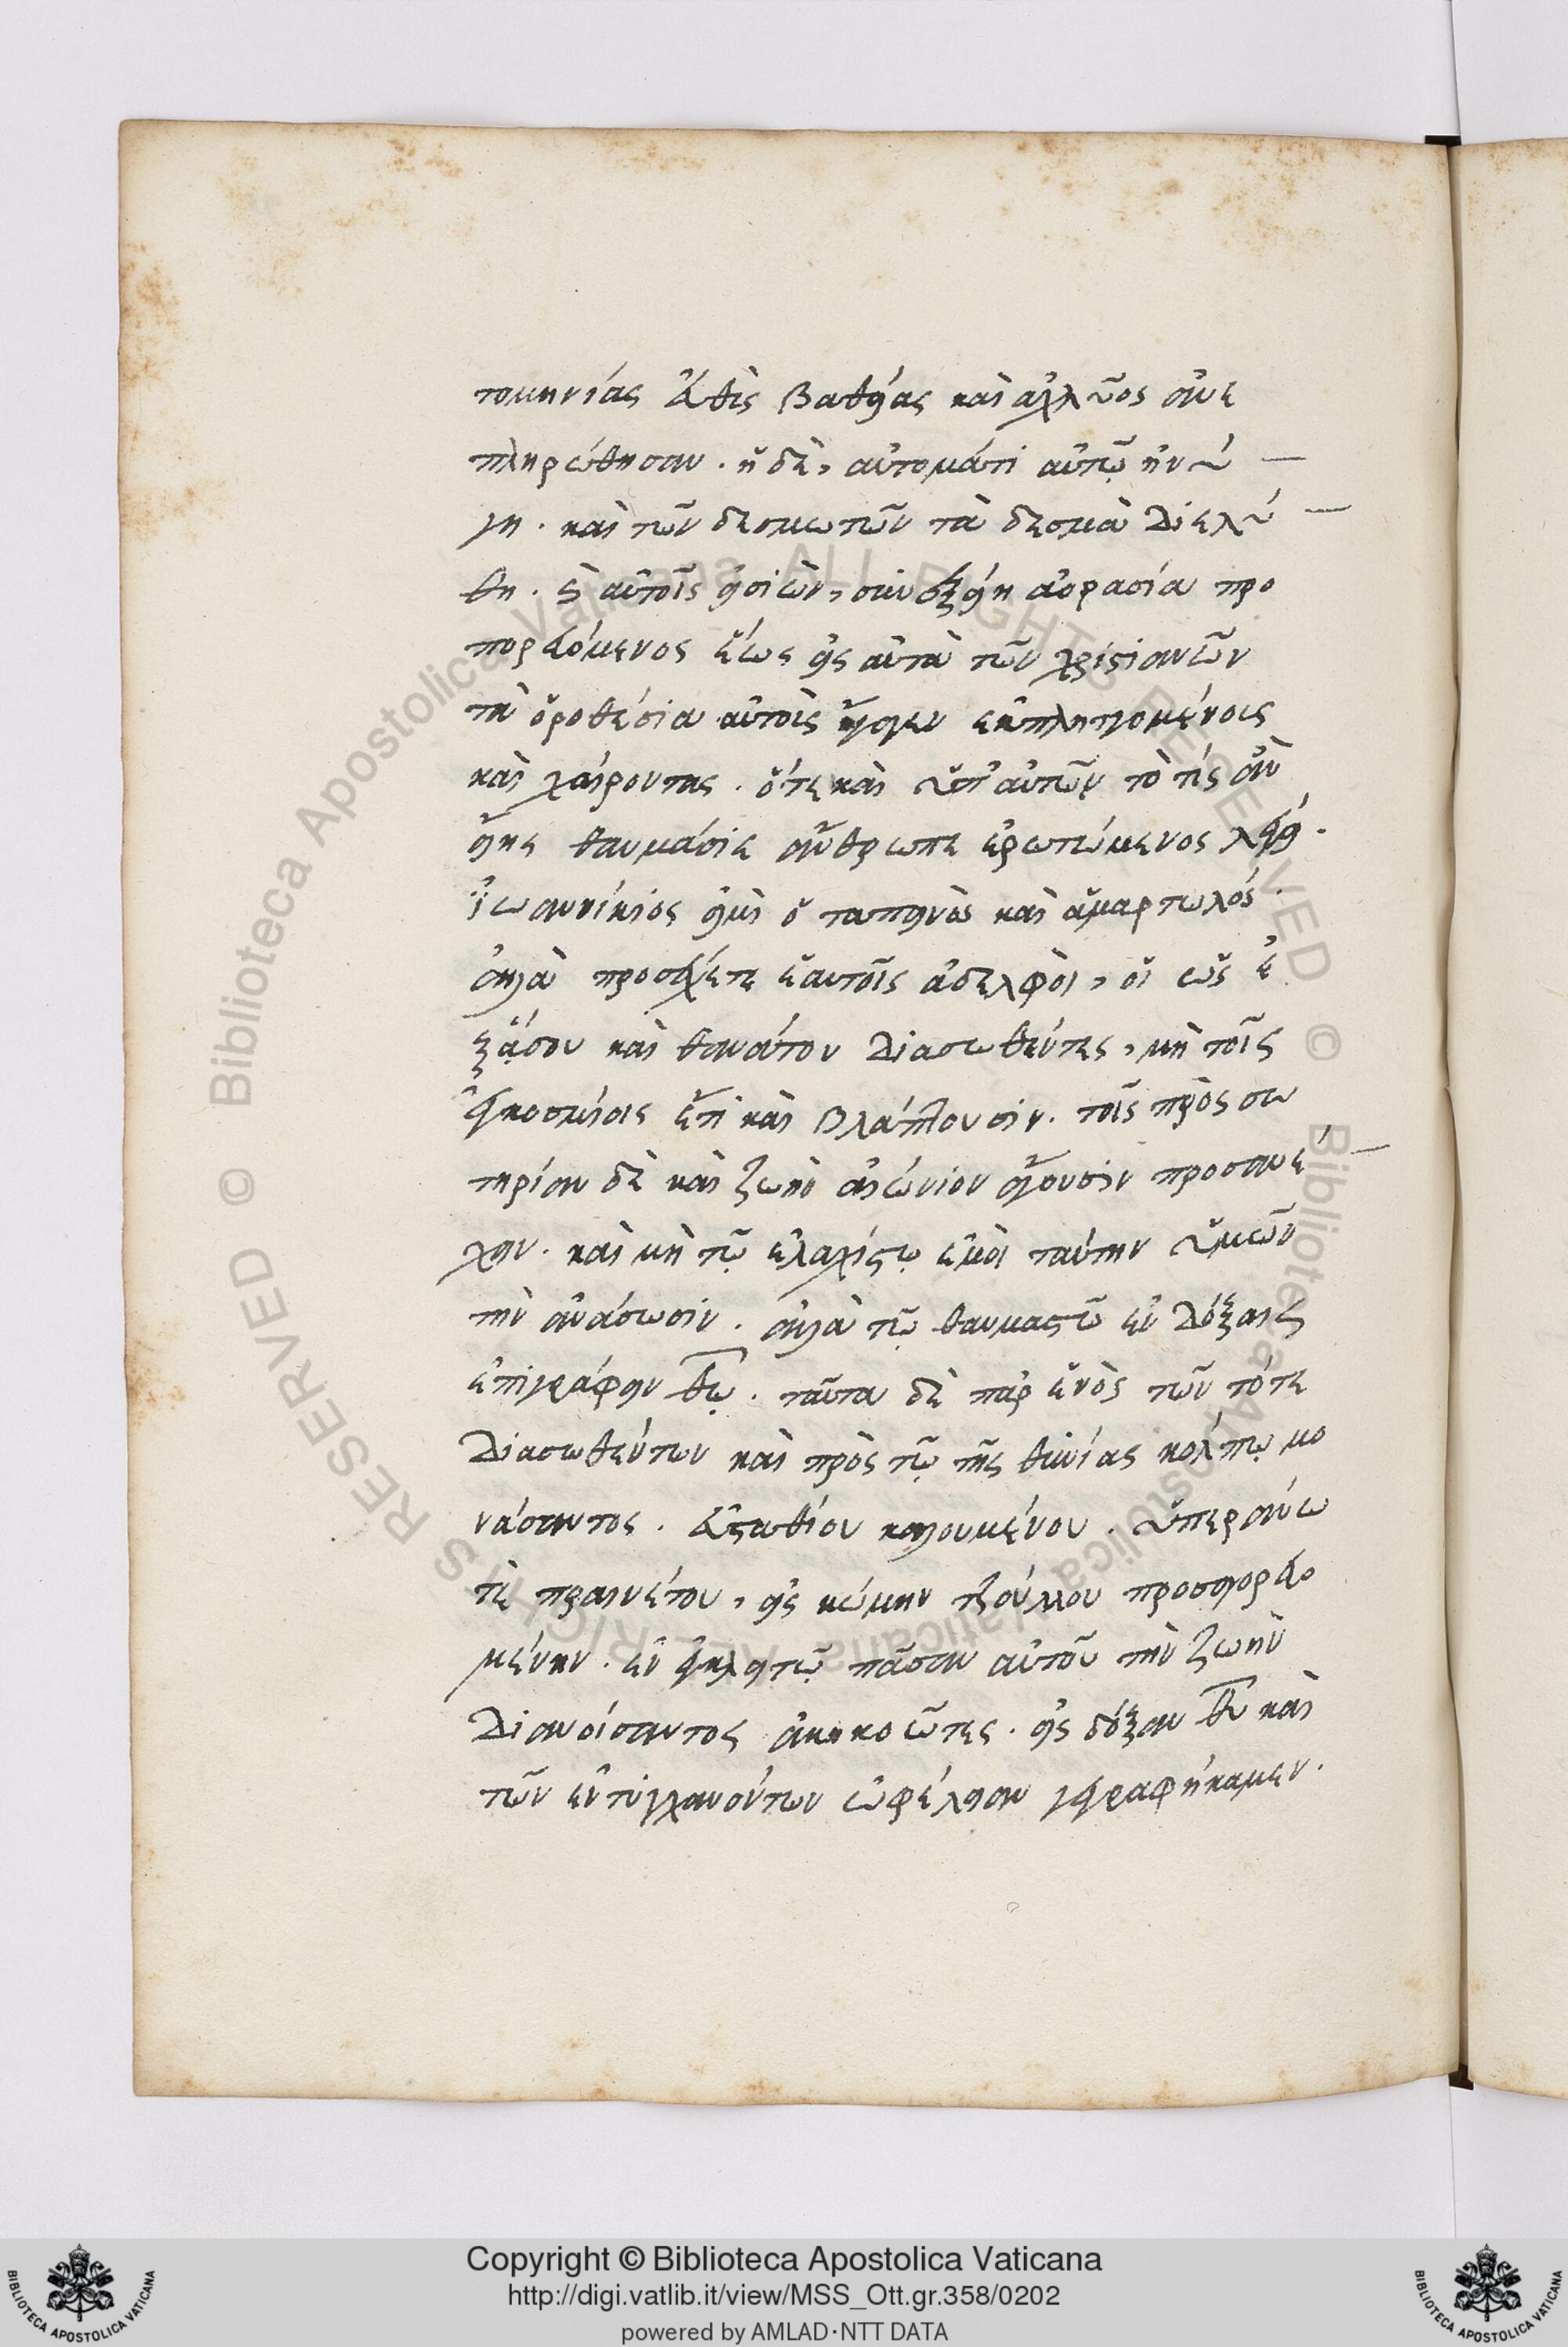 τομηνίας εὐθὺς βαθείας καὶ ἀχλύος ἀνε
πληρώθησαν. ἡ δὲ, αὐτομάτι αὐτῶ ἠνύ
γη. καὶ τῶν δεσμωτῶν τὰ δεσμὰ διελύ
θη. αὐτοῖς εἰσιὼν, σὺν ἀορασία προ
πορευόμενος ἕως εἰς αὐτὰ τῶν χριστιανῶν
τὰ ὁροθέσια αὐτοὶς ἤγαγεν ἐκπληττομένοις
καὶ χαίροντας. ὅτε καὶ ὑπ' αὐτῶν τὸ τίς ἂν
εἴης θαυμάσιε ἄνθρωπε ἐρωτώμενος λέγει.
ἰωαννίκιός εἰμὶ ὁ ταπεινὸς καὶ ἁμαρτωλός.
ἀλλὰ προσέχετε ἑαυτοῖς ἀδελφοὶ, οἱ ὡς ἐ
ξ ἅδου καὶ θανάτου διασωθέντες, μὴ τοῖς
ἐγκοσμίοις ἔτι καὶ βλάπτουσιν. τοῖς πρὸς σω
τηρίαν δὲ καὶ ζωὴν αἰώνιον ἄγουσιν προσανέ
χειν. καὶ μὴ τῶ ἐλαχίστω ἐμοὶ ταύτην ὑμῶν
τὴν ἀνάσωσιν. ἀλλὰ τῶ θαυμαστῶ ἐν δόξαις
ἐπιγράφειν θῶ. ταῦτα δὲ παρ ἑνὸς τῶν τότε
διασωθέντων καὶ πρὸς τῶ τῆς θυνίας κόλπω μο
νάσαντος. εὐσταθίου καλουμένου. ὑπεράνω
τὲ πραινέτου, εἰς κώμην τζούλλου προσαγορευο
μένην. ἐν ἐγκλειστῶ πᾶσαν αὐτοῦ τὴν ζωὴν
διανοίσαντος ἀκηκοῶτες. εἰς δόξαν θυ καὶ
τῶν ἐντυγχανόντων ὠφέλειαν γεγραφήκαμεν.
Copyright © Biblioteca Apostolica Vaticana
http://digi.vatlib.it/view/MSS_Ott.gr.358/0202
powered by AMLAD·NTT DATA